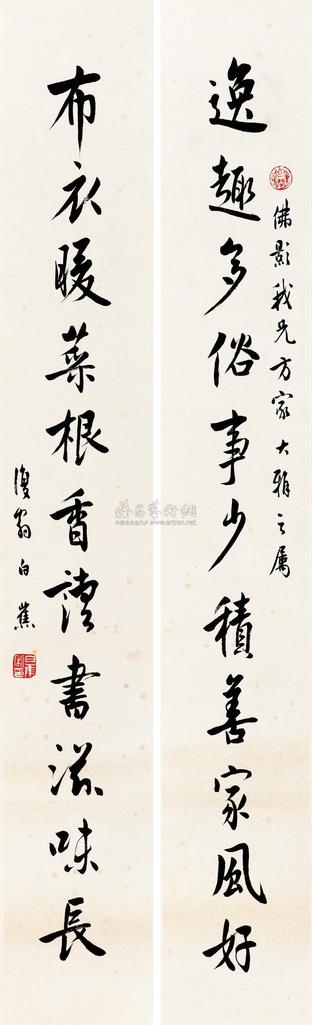 逸趣多俗事少積善家風好
佛影我兄方家大雅之屬
布衣暖菜根香讀書滋味長
復翁白蕉